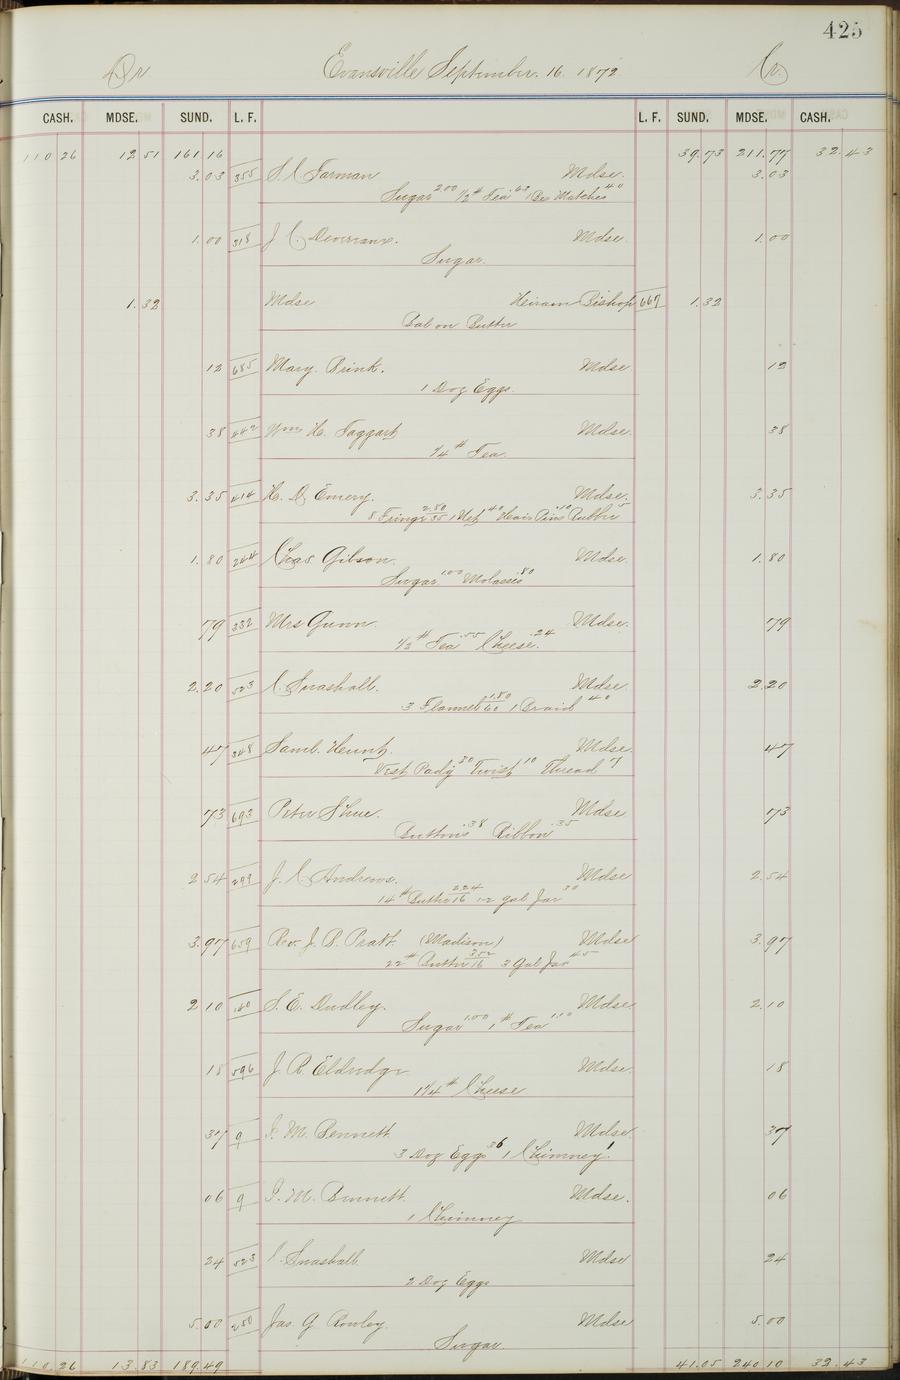 425
Dr Evansville September. 16. 1872 Cr.
CASH. MDSE. SUND. L. F. L. F. SUND. MDSE. CASH.
110 26 12 51 161 16 39.73 211.77 32.43
3.03 355 Mdse. 3.03
Sugar 2.00 1/2 # Tea 63 1 Box Matches 40
1.00 318 Mdse. 1.00
Sugar.
1.32 Mdse Hiram Bishop 667 1.32
Bal on Butter
12 685 Mary. Brink. Mdse 12
1 Doz Eggs.
38 442 Wm H. Taggart Mdse. 38
1/4 # Tea.
3.35 414 H. D. Emery. Mdse. 3.35
8 Fringe 2.80/35 1 Net 40 Hair Pins .10 Rubber 5
1.80 244 Chas. Gibson. Mdse. 1.80
Sugar 1.00 Molasses .80
79 332 Mrs Gunn. Mdse. 79
1/2 # Tea .55 Cheese .24
2.20 523 C. Snashall. Mdse 2.20
3 Flannel 1.80/60 1 Braid 40
47 348 Saml. Hunt. Mdse. 47
Vest Padg 30 Twist 10 Thread 7
73 693 Peter Shue. Mdse 73
Buttons .38 Ribbon .35
2 54 293 J. C. Andrews. Mdse 2.54
14 # Butter 2.24/16 1-2 gal Jar 30
3.97 659 Rev. J. B. Pratt. (Madison) Mdse 3.97
22 # Butter 3.52/16 3 Gal Jar 45
2 10 S. E. Dudley. Mdse. 2.10
Sugar 1.00 1 # Tea 1.10
18 596 J. R. Eldredge Mdse. 18
1 1/4 # Cheese
37 9 I. M. Bennett Mdse 37
3 Doz Eggs 36 1 Chimney 1
06 9 I. M. Bennett. Mdse. 06
1 Chimney
24 523 C. Snashall. Mdse 24
2 Doz Eggs
5.00 250 Jas. G Rowley. Mdse 5.00
Sugar.
110.26 13.83 189.49 41.05 240.10 32.43